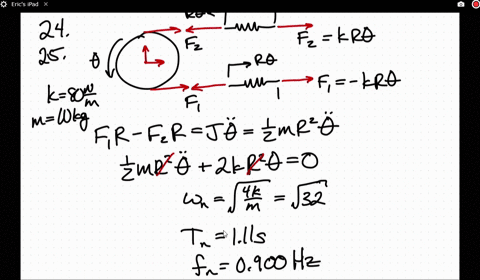 Eric's iPad
24.
25.
Rθ
F₂
F₂ = kRθ
θ
Rθ
F₁
F₁ = -kRθ
k = 80 N/m
m = 10 kg
F₁R - F₂R = Jθ̈ = ½mR²θ̈
½mR²θ̈ + 2kR²θ = 0
ωₙ = √(4k/m) = √32
Tₙ = 1.11s
fₙ = 0.900 Hz